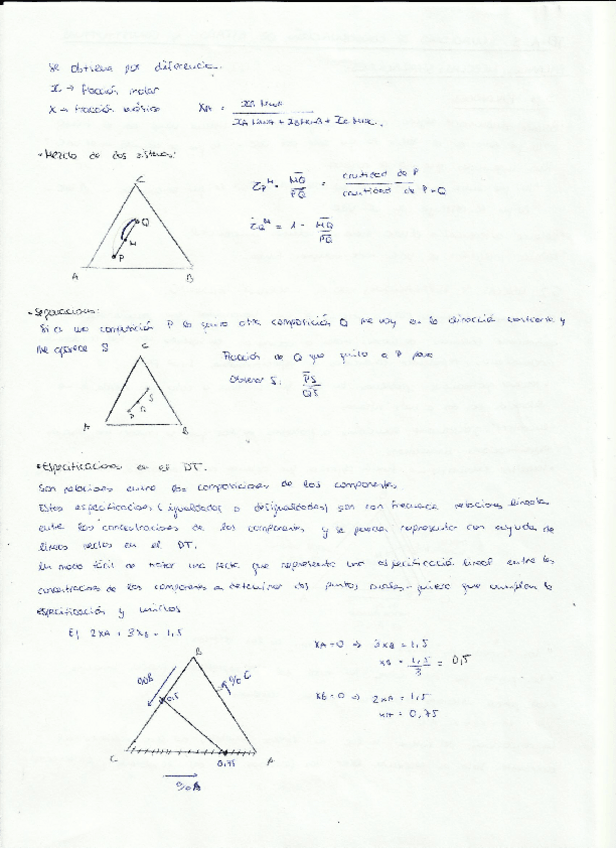 Se obtiene por diferencia.
x → fracción molar
X → fracción másica XA =
• Mezcla de dos sistemas:
C
= MQ / PQ = cantidad de P / cantidad de P+Q
Q
M
= 1 - MQ / PQ
P
A
B
• Separaciones:
Si a una composición P le quito otra composición Q me voy en la dirección contraria y
me aparece S
C
Fracción de Q que quito a P para
obtener S: PS / QS
S
A
B
• Especificaciones en el DT.
Son relaciones entre las composiciones de los componentes.
Estas especificaciones (igualdades o desigualdades) son con frecuencia relaciones lineales
entre las concentraciones de los componentes y se pueden representar con ayuda de
líneas rectas en el DT.
Un modo fácil de trazar una recta que representa una especificación lineal entre las
concentraciones de los componentes es determinar dos puntos que cumplan la
especificación y unirlos
Ej 2xA + 3xB = 1,5
xA=0 ⇒ 3xB = 1,5
xB = 1,5 / 3 = 0,5
xB=0 ⇒ 2xA = 1,5
xA = 0,75
B
%B
%C
0,5
C
A
0,75
%A